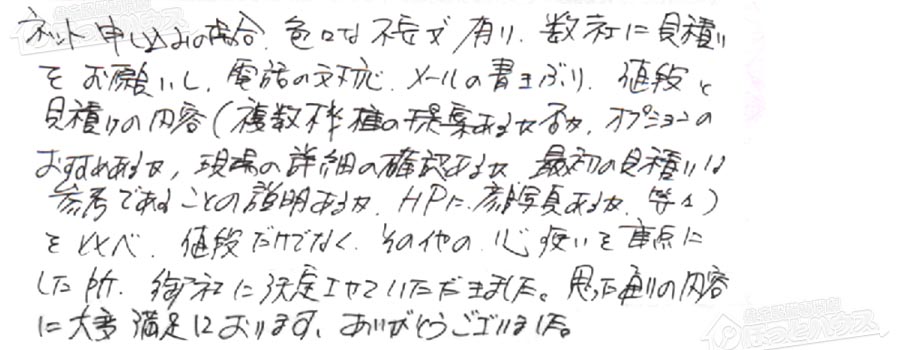 ネット申し込みの場合、色々な不安が有り、数社に見積り
をお願いし、電話の対応、メールの書きぶり、値段と
見積りの内容(複数機種の提案あるか否か、オプションの
おすすめあるか、現場の詳細の確認あるか、最初の見積りは
参考であることの説明あるか、HPに顔写真あるか、等々)
を比べ、値段だけでなく、その他の心使いを重点に
した所、御社に決定させていただきました。思った通りの内容
に大変満足しております、ありがとうございました。
ほっとハウス